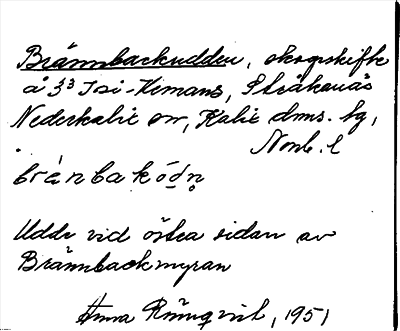 Brännbackudden, skogsskifte
å 3³ Isi-Kemans, Stråkanäs
Nederkalix sn, Kalix dms. hg,
Norrb. l
bránbakódn̥
Udde vid östra sidan av
Brännbackmyran
Anna Rönnqvist, 1951